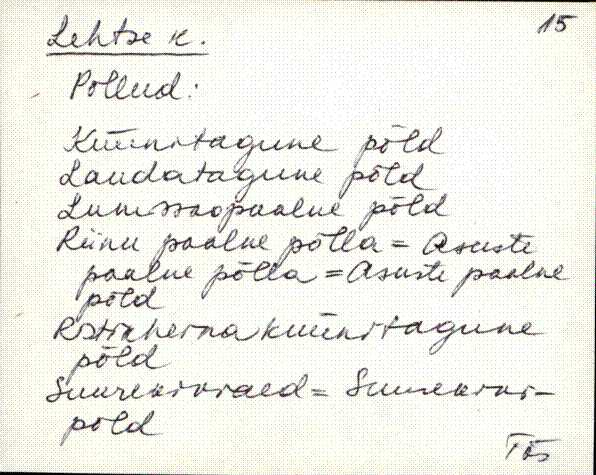 15
Lehtse k.
Põllud:
Küünitagune põld
Laudatagune põld
Lumssaopaalne põld
Riinu paalne põlla = Asuste
paalne põlla = Asuste paalne
põld
Ristikheinaküünitagune
põld
Suurekiviaed = Suurekivi-
põld